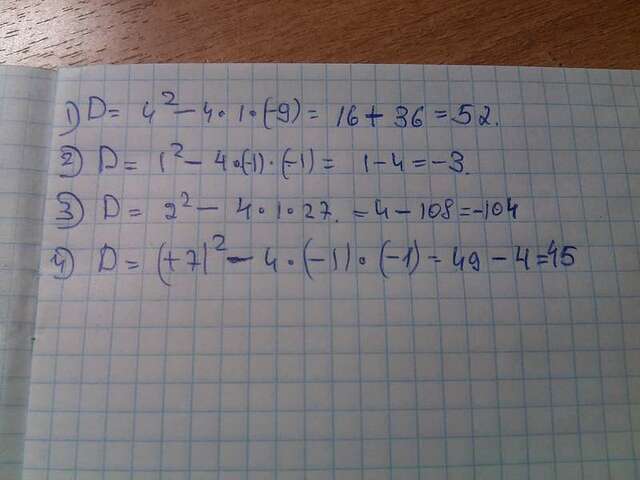 1) D = 4² - 4 · 1 · (-9) = 16 + 36 = 52.
2) D = 1² - 4 · (-1) · (-1) = 1 - 4 = -3.
3) D = 2² - 4 · 1 · 27. = 4 - 108 = -104
4) D = (+7)² - 4 · (-1) · (-1) = 49 - 4 = 45